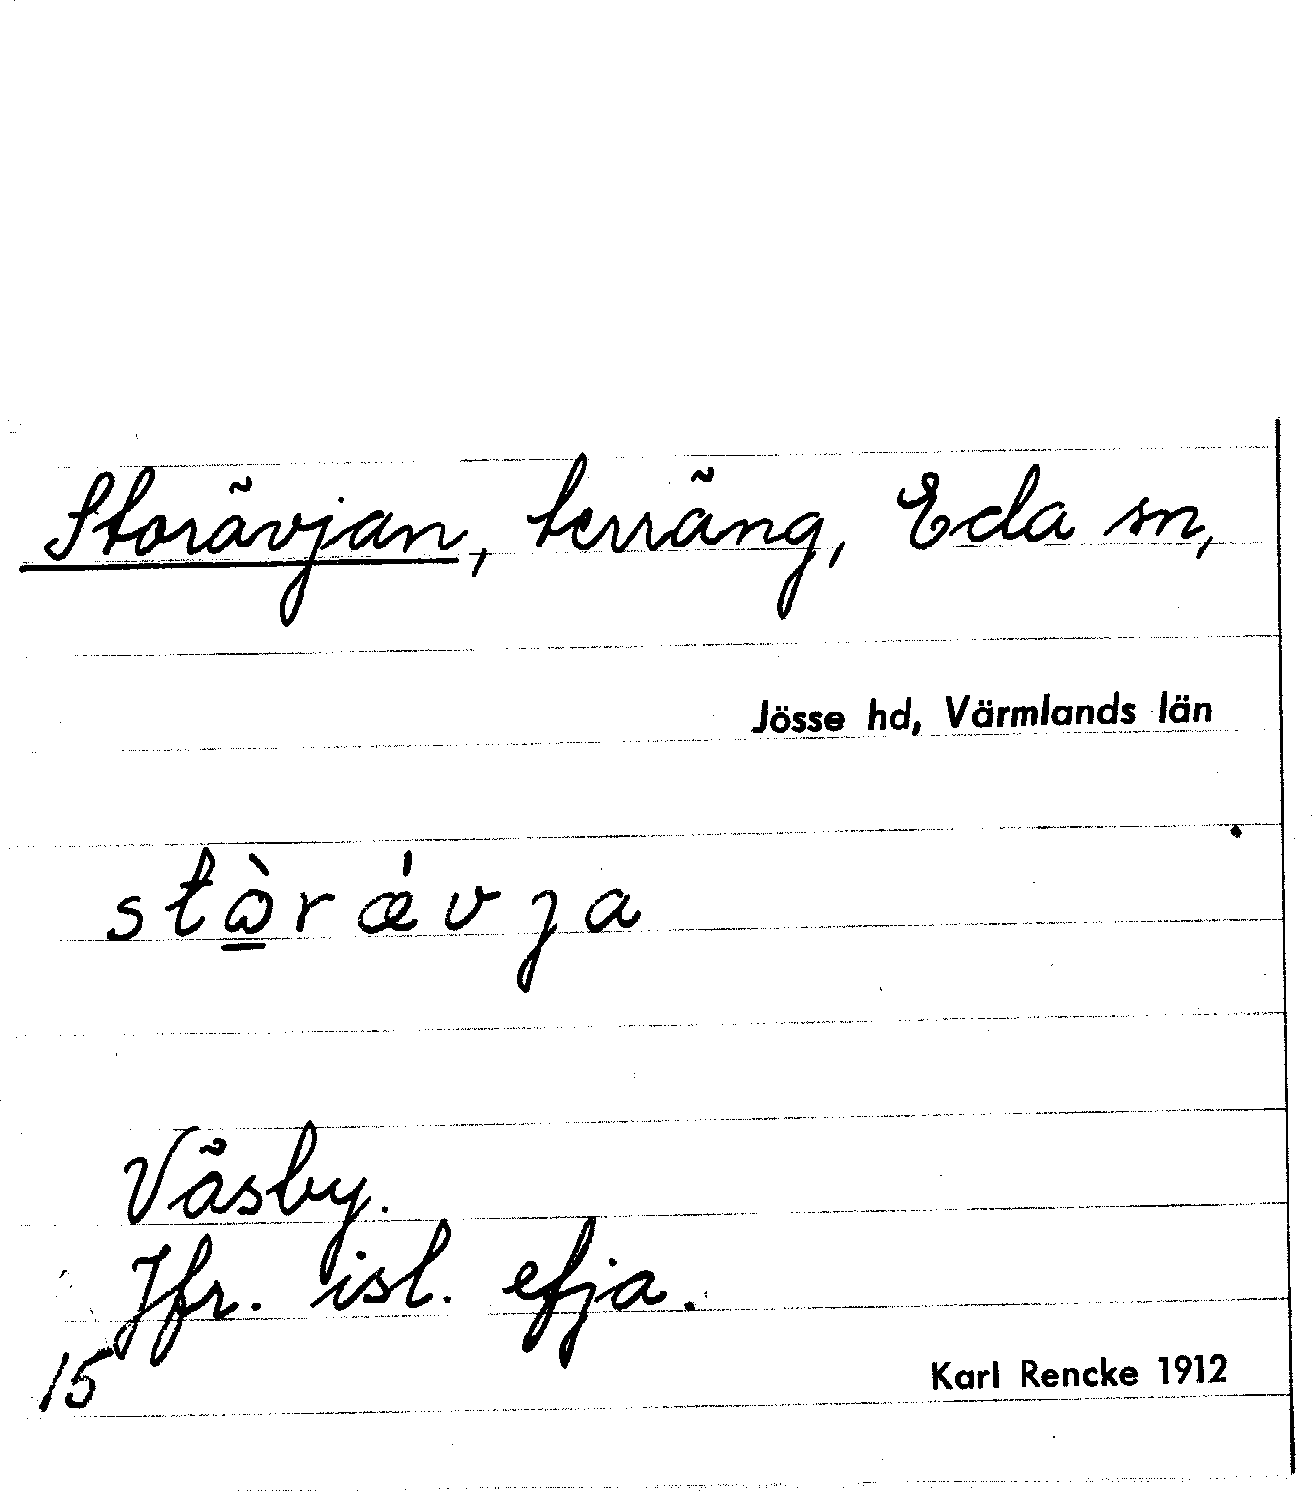 Storävjan, terräng, Eda sn,
Jösse hd, Värmlands län
stὼ̲rǽvja
Väsby.
Jfr. isl. efja.
15
Karl Rencke 1912